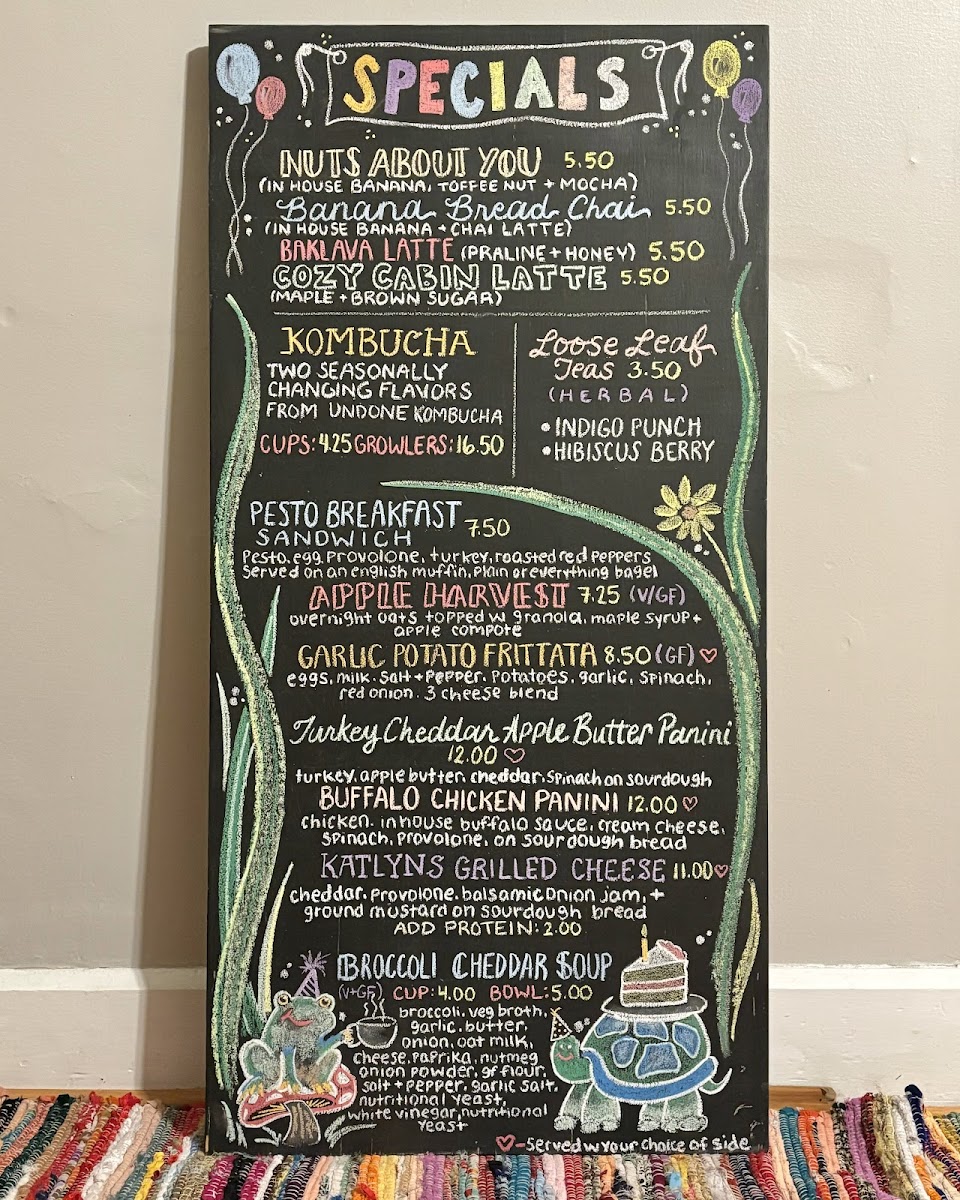 SPECIALS
NUTS ABOUT YOU 5.50
(IN HOUSE BANANA, TOFFEE NUT + MOCHA)
Banana Bread Chai 5.50
(IN HOUSE BANANA + CHAI LATTE)
BAKLAVA LATTE (PRALINE + HONEY) 5.50
COZY CABIN LATTE 5.50
(MAPLE + BROWN SUGAR)
KOMBUCHA
TWO SEASONALLY
CHANGING FLAVORS
FROM UNDONE KOMBUCHA
CUPS: 4.25 GROWLERS: 16.50
Loose Leaf
Teas 3.50
(HERBAL)
• INDIGO PUNCH
• HIBISCUS BERRY
PESTO BREAKFAST
SANDWICH 7.50
Pesto, egg, provolone, turkey, roasted red peppers
Served on an english muffin, plain or everything bagel
APPLE HARVEST 7.25 (V/GF)
overnight oats topped w granola, maple syrup +
apple compote
GARLIC POTATO FRITTATA 8.50 (GF) ♡
eggs, milk, salt + pepper, potatoes, garlic, spinach,
red onion, 3 cheese blend
Turkey Cheddar Apple Butter Panini
12.00 ♡
turkey, apple butter, cheddar, spinach on sourdough
BUFFALO CHICKEN PANINI 12.00 ♡
chicken, in house buffalo sauce, cream cheese,
spinach, provolone, on sourdough bread
KATLYNS GRILLED CHEESE 11.00 ♡
cheddar, provolone, balsamic onion jam, +
ground mustard on sourdough bread
ADD PROTEIN: 2.00
BROCCOLI CHEDDAR SOUP
(V+GF) CUP: 4.00 BOWL: 5.00
broccoli, veg broth,
garlic, butter,
onion, oat milk,
cheese, paprika, nutmeg
onion powder, gf flour,
salt + pepper, garlic salt,
nutritional yeast,
white vinegar, nutritional
yeast
♡ - Served w your choice of side